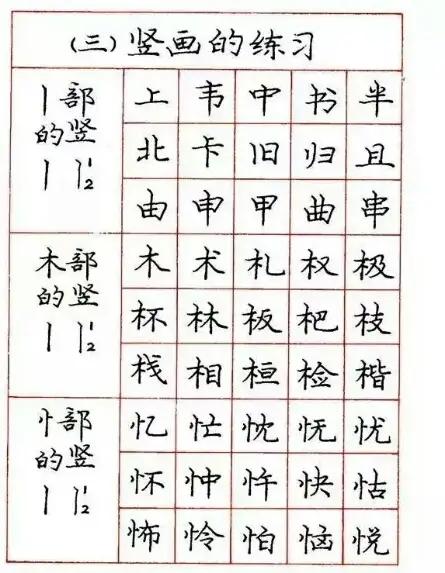 (三)竖画的练习
丨部的竖
上 韦 中 书 半
北 卡 旧 归 且
由 申 甲 曲 串
木部的竖
木 术 札 权 极
杯 林 板 杷 枝
栈 相 桓 检 楷
忄部的竖
忆 忙 忱 怃 忧
怀 忡 忤 快 怙
怖 怜 怕 恼 悦